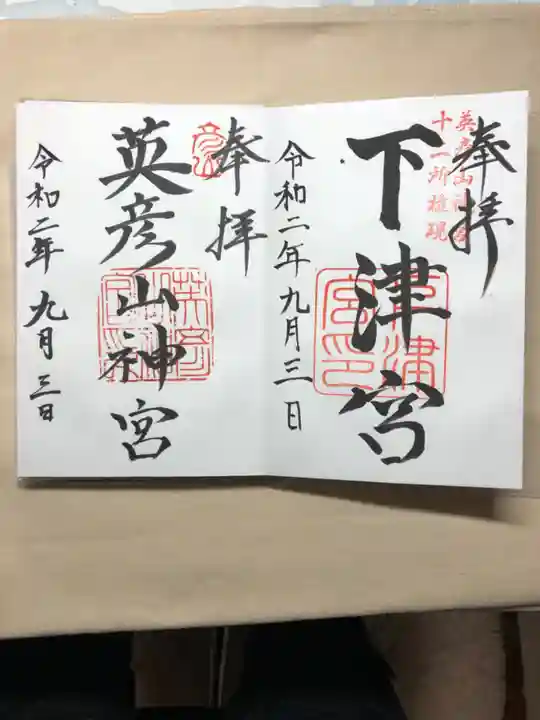 奉拝
英彦山神宮
十一所権現
下津宮
下津宮印
令和二年九月三日
奉拝
英彦山神宮
令和二年九月三日